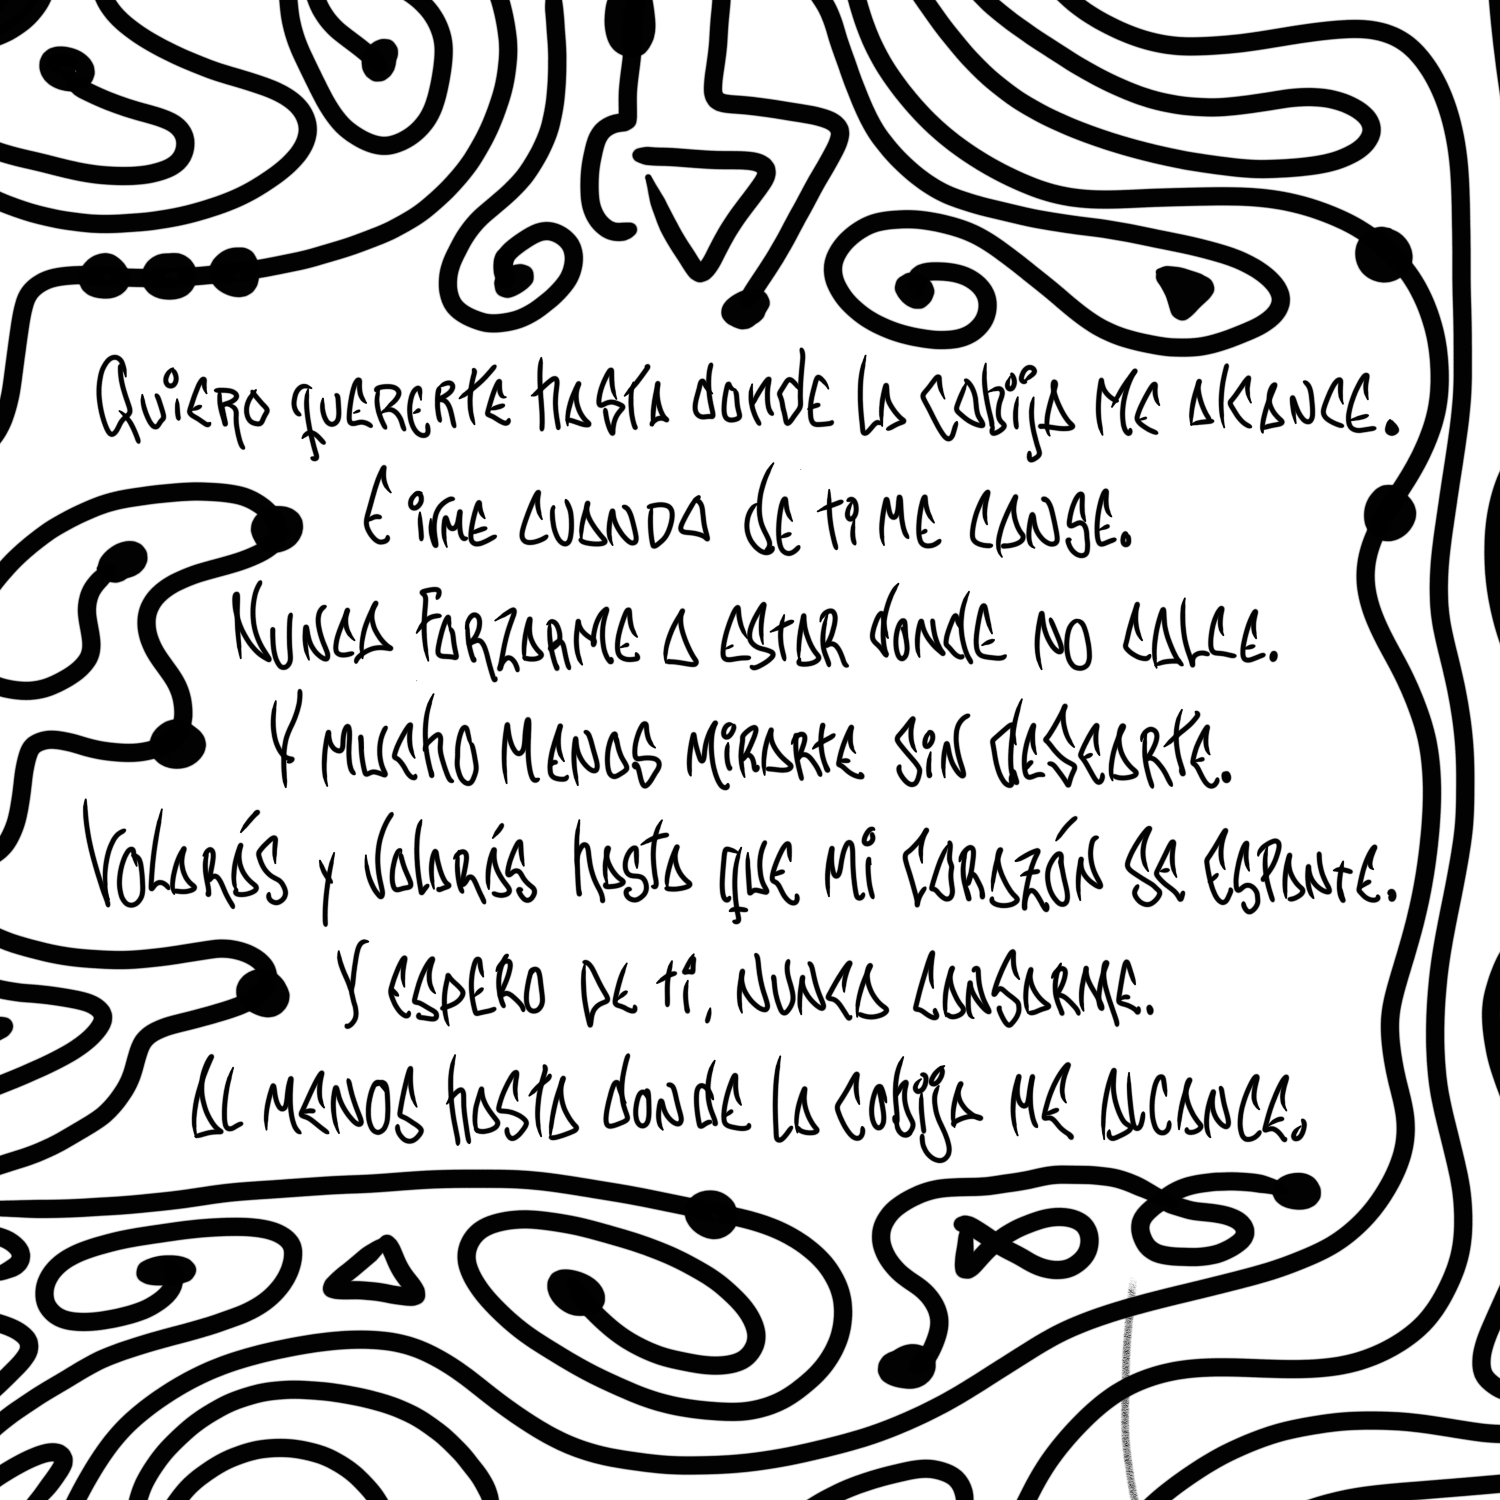 Quiero quererte hasta donde la cobija me alcance.
E irme cuando de ti me canse.
Nunca forzarme a estar donde no calce.
Y mucho menos mirarte sin desearte.
Volarás y volarás hasta que mi corazón se espante.
Y espero de ti, nunca cansarme.
Al menos hasta donde la cobija me alcance.